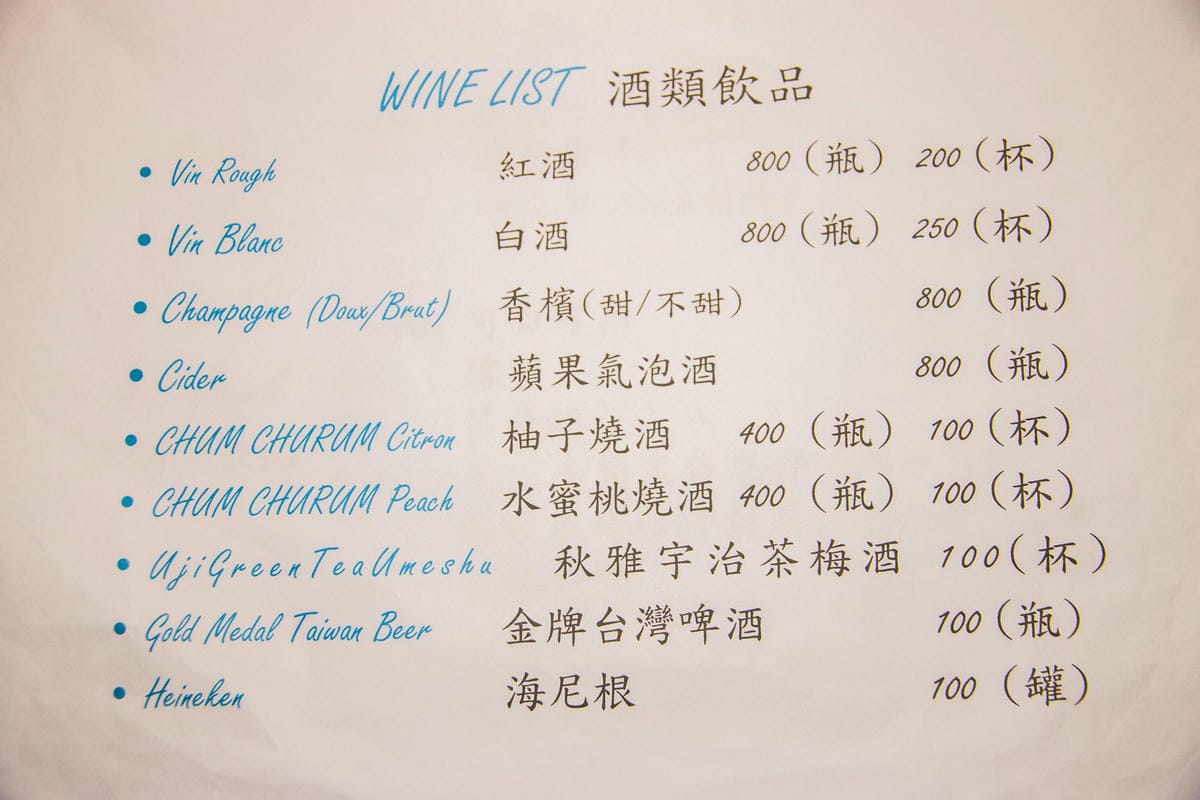 WINE LIST 酒類飲品
• Vin Rough 紅酒 800（瓶） 200（杯）
• Vin Blanc 白酒 800（瓶） 250（杯）
• Champagne (Doux/Brut) 香檳(甜/不甜) 800（瓶）
• Cider 蘋果氣泡酒 800（瓶）
• CHUM CHURUM Citron 柚子燒酒 400（瓶） 100（杯）
• CHUM CHURUM Peach 水蜜桃燒酒 400（瓶） 100（杯）
• UjiGreenTeaUmeshu 秋雅宇治茶梅酒 100(杯)
• Gold Medal Taiwan Beer 金牌台灣啤酒 100（瓶）
• Heineken 海尼根 100（罐）